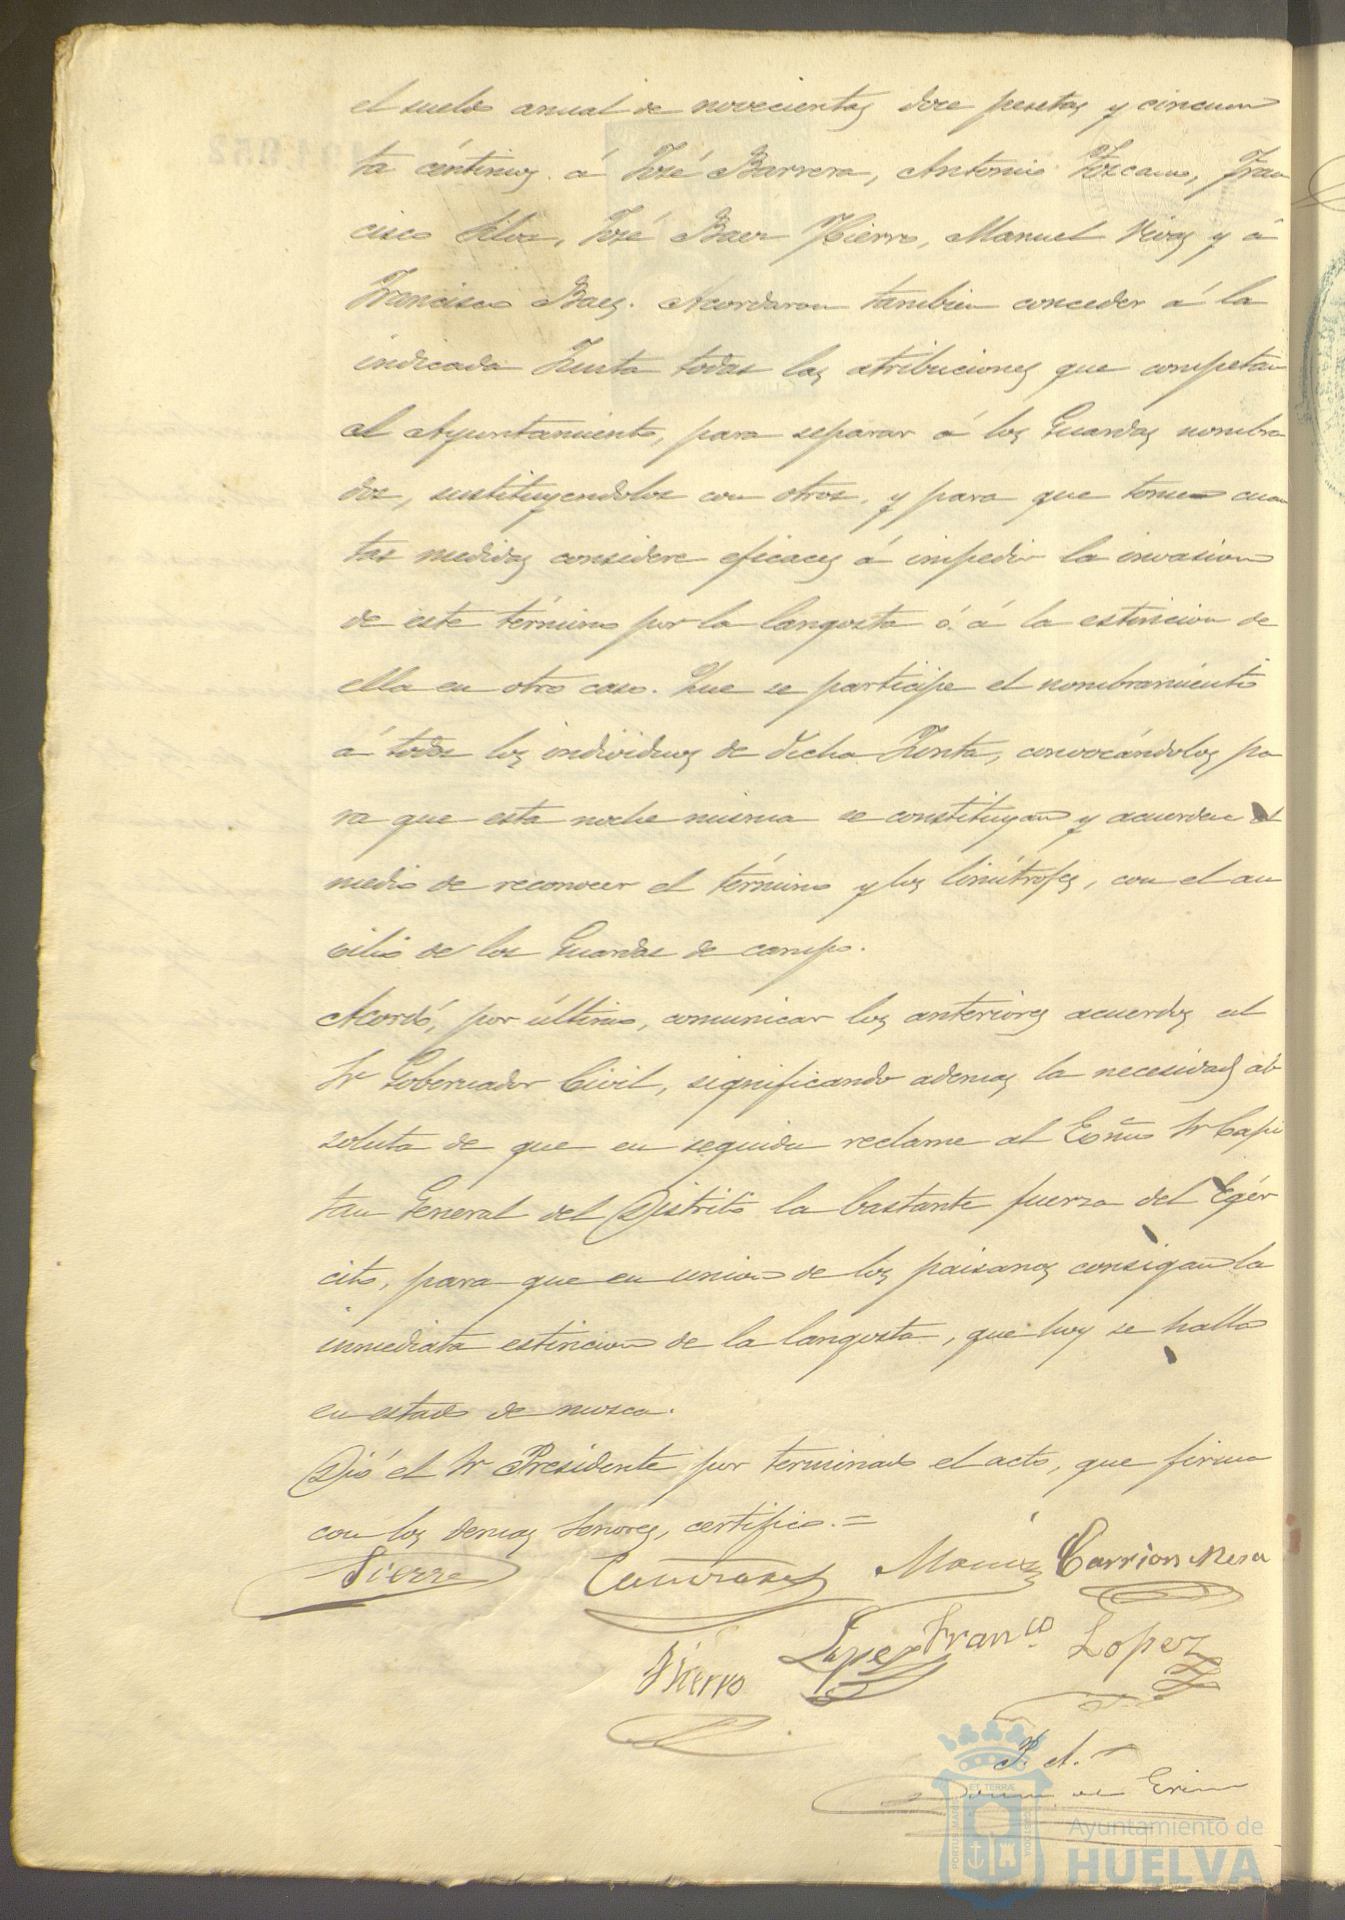 el sueldo anual de novecientas doce pesetas y cincuen
ta céntimos á José Barrera, Antonio Toscano, Fran
cisco Silva, José Baez Hierro, Manuel Vivas y á
Francisco Baez. Acordaron tambien conceder á la
indicada Junta todas las atribuciones que competan
al Ayuntamiento, para separar á los Guardas nombra
dos, sustituyendolos con otros, y para que tome cuan
tas medidas considere eficaces á impedir la invasion
de este término por la langosta ó á la estincion de
ella en otro caso. Que se participe el nombramiento
á todos los individuos de dicha Junta, convocándolos pa
ra que esta noche misma se constituyan y acuerden el
medio de reconocer el término y los limítrofes, con el au
cilio de los Guardas de campo.
Acordó, por último, comunicar los anteriores acuerdos al
Sr Gobernador Civil, significando ademas la necesidad ab
soluta de que en seguida reclame al Excmo Sr Capi
tan General del Distrito la bastante fuerza del Egér
cito, para que en union de los paisanos consigan la
inmediata estincion de la langosta, que hoy se halla
en estado de mosca.
Dió el Sr Presidente por terminado el acto, que firma
con los demas Señores, certifico.=
Hierro Carrion Mesa
Hierro Lopez Franco Lopez
P. A.
Ayuntamiento de
HUELVA